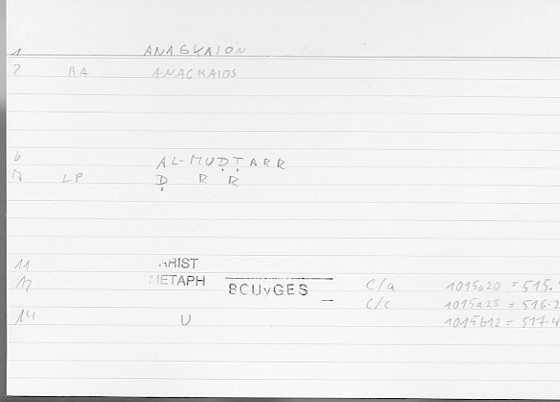 1 ANAGKAION
2 RA ANAGKAIOS
6 AL-MUḌṬARR
LP Ḍ R R
11 ARIST
12 METAPH BOUYGES C/a 1015a20 = 515.
C/c 1015a25 = 516.2
14 U 1015b12 = 517.4